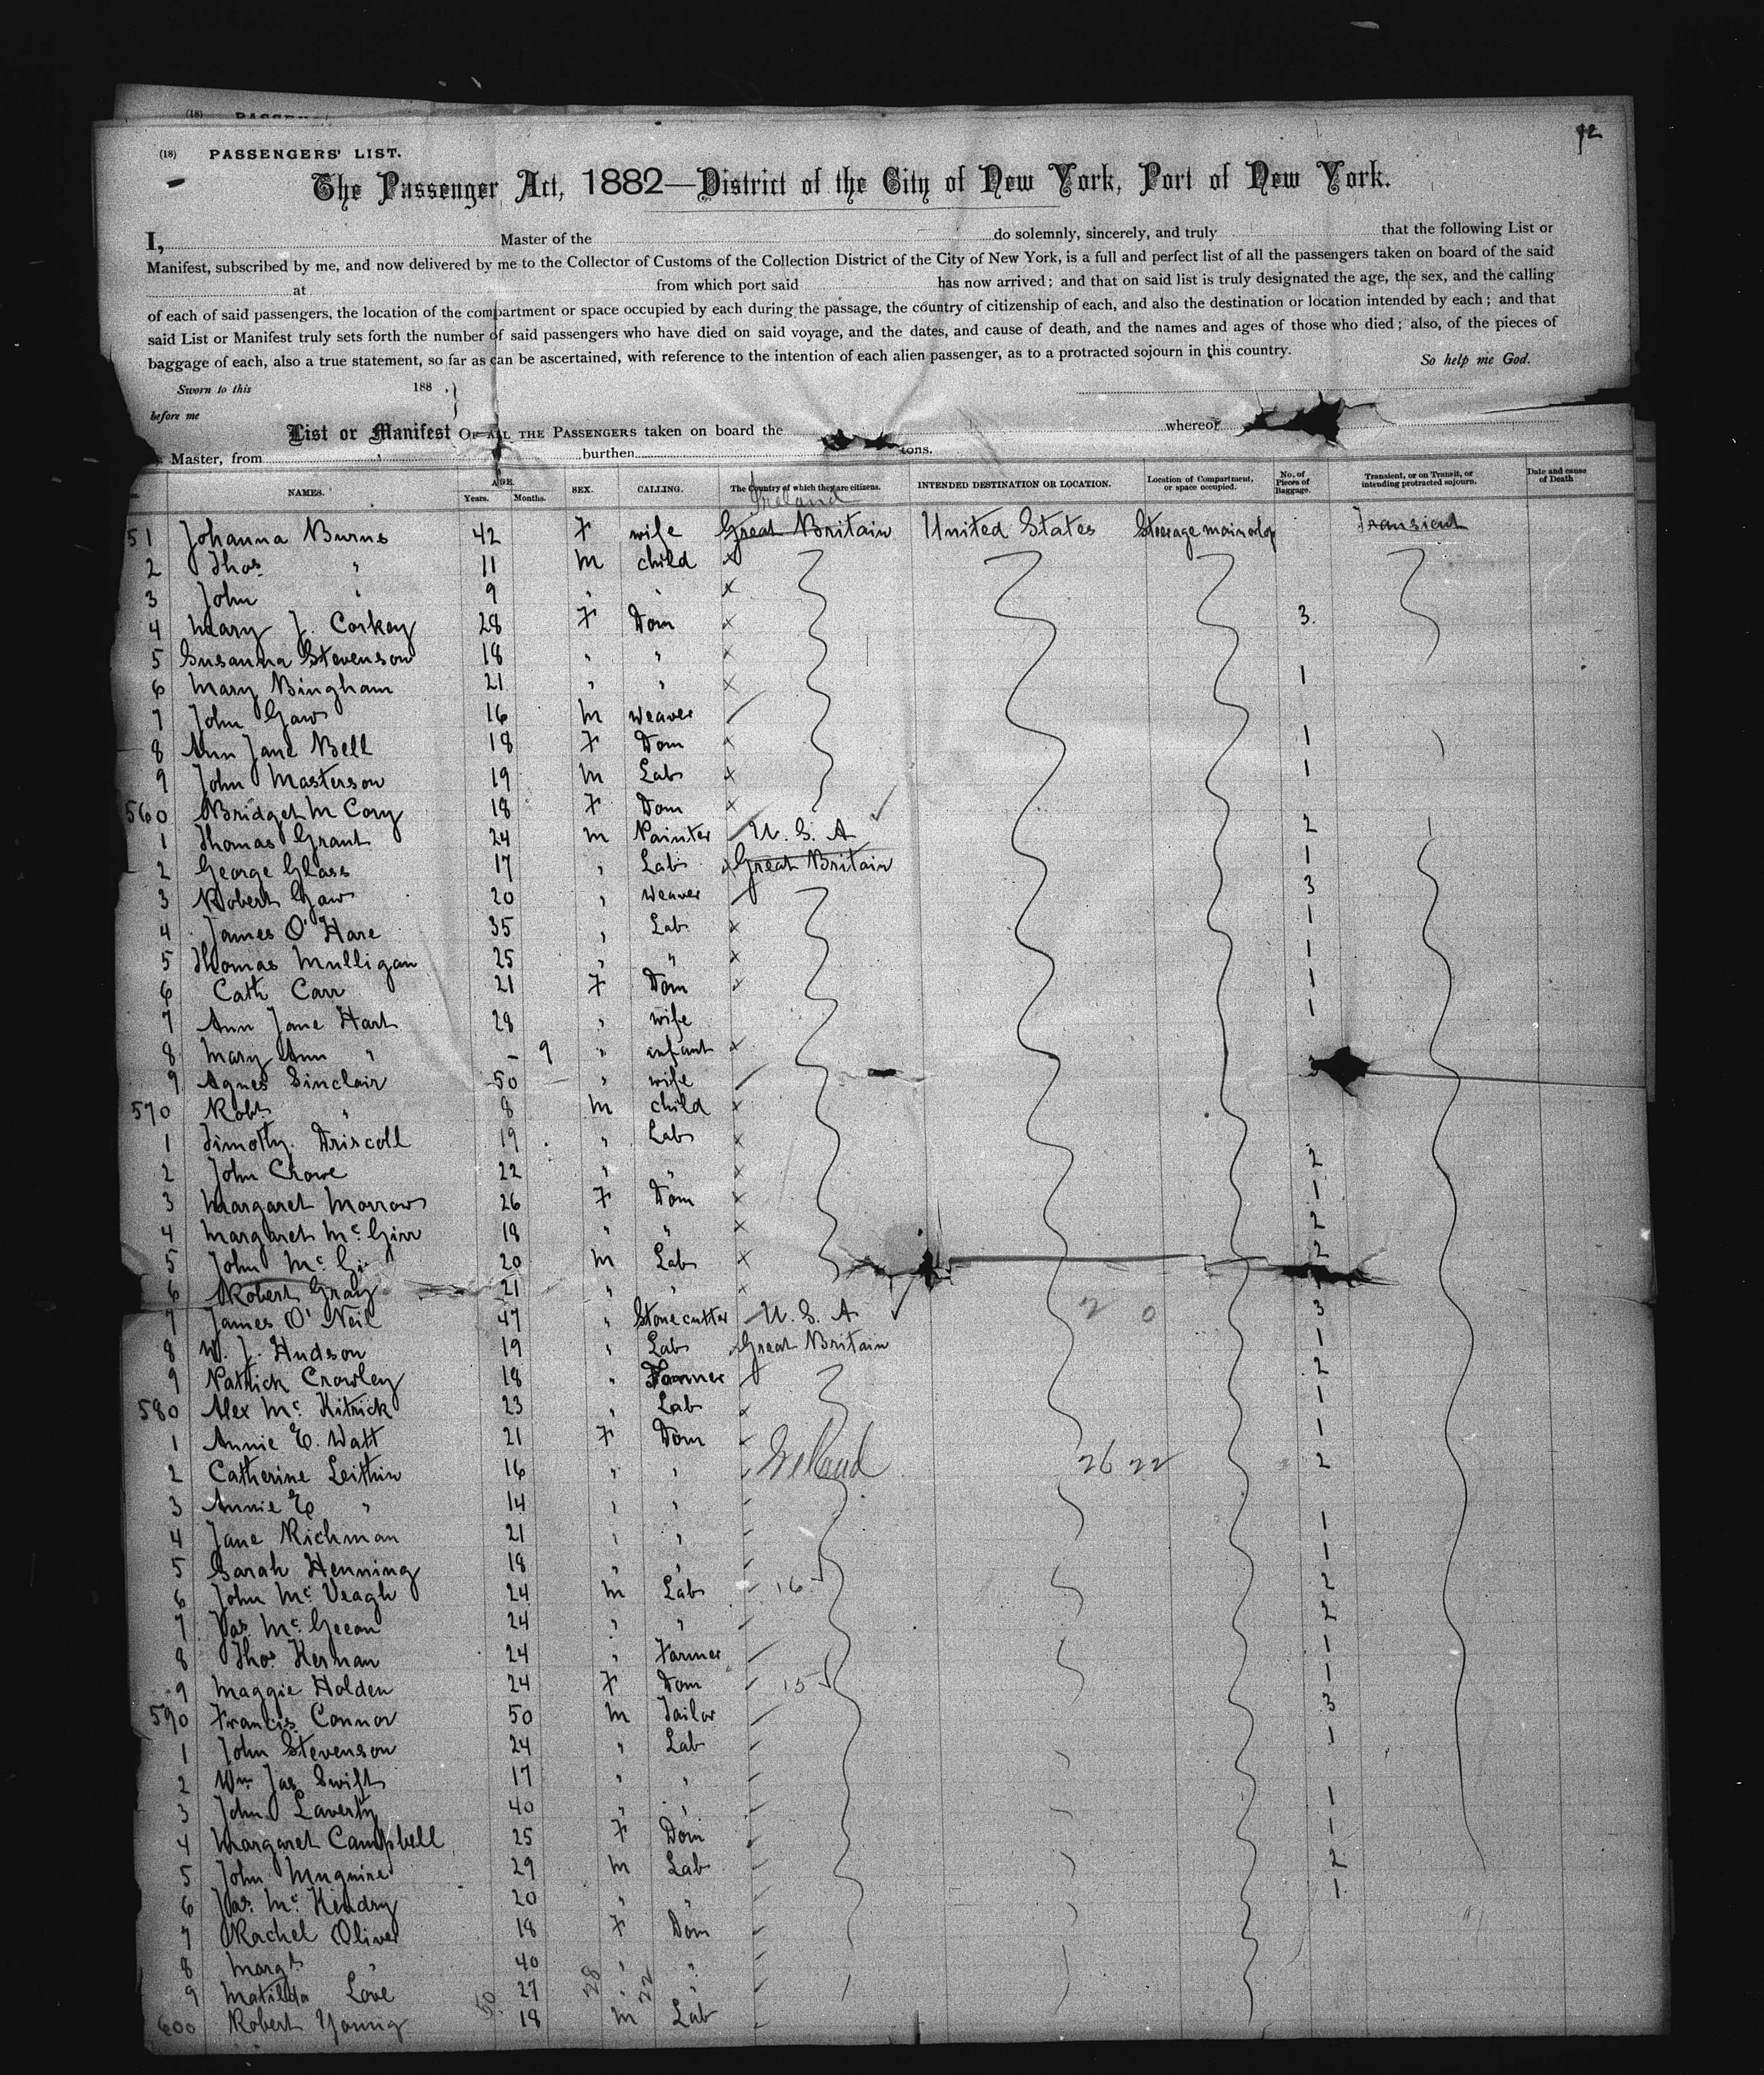 (18) PASSENGERS' LIST.
92
The Passenger Act, 1882—District of the City of New York, Port of New York.
I, Master of the do solemnly, sincerely, and truly that the following List or
Manifest, subscribed by me, and now delivered by me to the Collector of Customs of the Collection District of the City of New York, is a full and perfect list of all the passengers taken on board of the said
at from which port said has now arrived; and that on said list is truly designated the age, the sex, and the calling
of each of said passengers, the location of the compartment or space occupied by each during the passage, the country of citizenship of each, and also the destination or location intended by each; and that
said List or Manifest truly sets forth the number of said passengers who have died on said voyage, and the dates, and cause of death, and the names and ages of those who died; also, of the pieces of
baggage of each, also a true statement, so far as can be ascertained, with reference to the intention of each alien passenger, as to a protracted sojourn in this country. So help me God.
Sworn to this 188 ,
before me
List or Manifest OF ALL THE PASSENGERS taken on board the whereof
Master, from burthen tons.
NAMES. AGE. Years. Months. SEX. CALLING. The Country of which they are citizens. INTENDED DESTINATION OR LOCATION. Location of Compartment, or space occupied. No. of Pieces of Baggage. Transient, or on Transit, or intending protracted sojourn. Date and cause of Death
Ireland
51 Johanna Burns 42 F wife Great Britain United States Steerage main Transient
2 Thos " 11 M child
3 John " 9 " "
4 Mary J. Corkey 28 F Dom 3
5 Susanna Stevenson 18 " "
6 Mary Bingham 21 " " 1
7 John Gaw 16 M Weaver
8 Ann Jane Bell 18 F Dom 1
9 John Masterson 19 M Lab 1
560 Bridget McCory 18 F Dom
1 Thomas Grant 24 M Painter U.S.A 2
2 George Glass 17 " Lab Great Britain 1
3 Robert Gaw 20 " Weaver 3
4 James O'Hare 35 " Lab 1
5 Thomas Mulligan 25 " " 1
6 Cath Carr 21 F Dom 1
7 Ann Jane Hart 28 " wife 1
8 Mary Ann " - 9 " infant
9 Agnes Sinclair 50 " wife
570 Robt " 8 M child
1 Timothy Driscoll 19 " Lab
2 John Crowe 22 " " 2
3 Margaret Morrow 26 F Dom 1
4 Margaret McGirr 18 " " 2
5 John Mc 20 M Lab 2
6 Robert Gray 21 " "
7 James O'Neil 47 " Stonecutter U.S.A 2 0 3
8 W. J. Hudson 19 " Lab Great Britain 1
9 Patrick Crowley 18 " Farmer 2
580 Alex McKitrick 23 " Lab 1
1 Annie E. Watt 21 F Dom 1
2 Catherine Leithin 16 " " Ireland 26 22 2
3 Annie E " 14 " "
4 Jane Richman 21 " " 1
5 Sarah Henning 18 " " 1
6 John McVeagh 24 M Lab 16 2
7 Jas. McGeean 24 " " 2
8 Thos Kernan 24 " Farmer 1
9 Maggie Holden 24 F Dom 15 1
590 Francis Connor 50 M Tailor 3
1 John Stevenson 24 " Lab 1
2 Wm Jas Swift 17 " "
3 John Laverty 40 " " 1
4 Margaret Campbell 25 F Dom 1
5 John Maguire 29 M Lab 2
6 Jas. McKendry 20 " " 1
7 Rachel Oliver 18 F Dom
8 Margt " 40 " "
9 Matilda Love 27 " "
600 Robert Young 18 M Lab
50 28 22